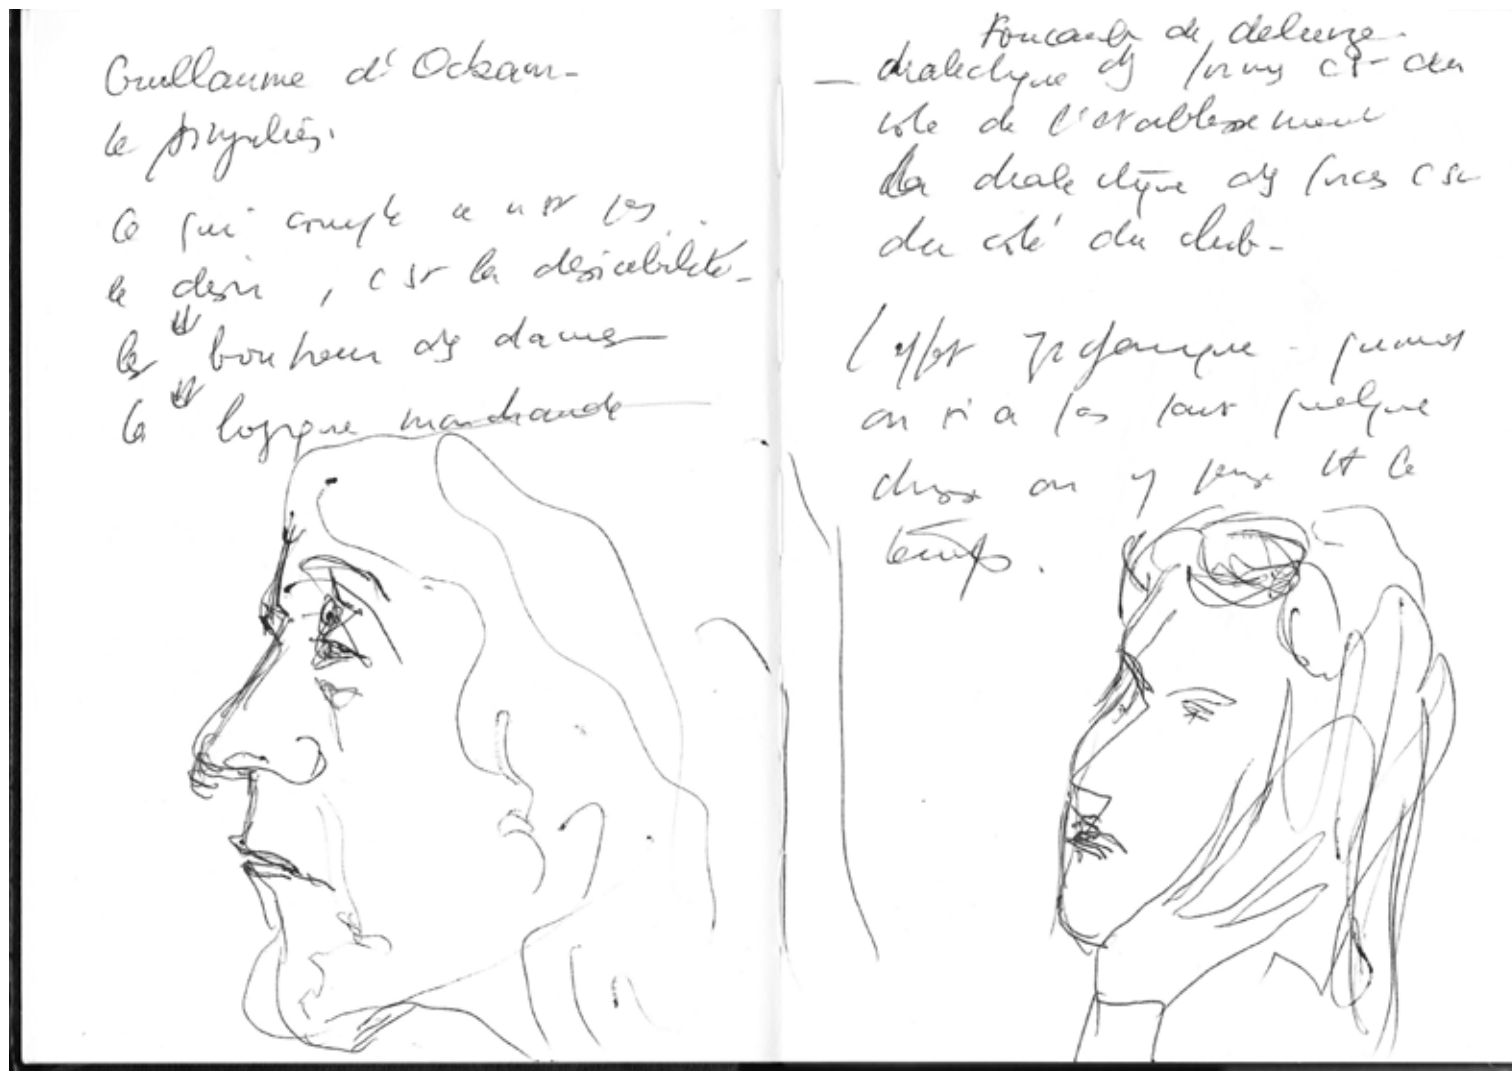 Guillaume d'Ockam -
le singulier.
Ce qui compte ce n'est pas
le desir, c'est la désirabilité -
le bonheur des dames
la logique marchande
Foucault de deleuze -
— dialectique des formes c'est du
coté de l'établissement
La dialectique des forces c'est
du coté du club -
l'effet - quand
on n'a pas tout quelque
chose on y pense tt le
temps.